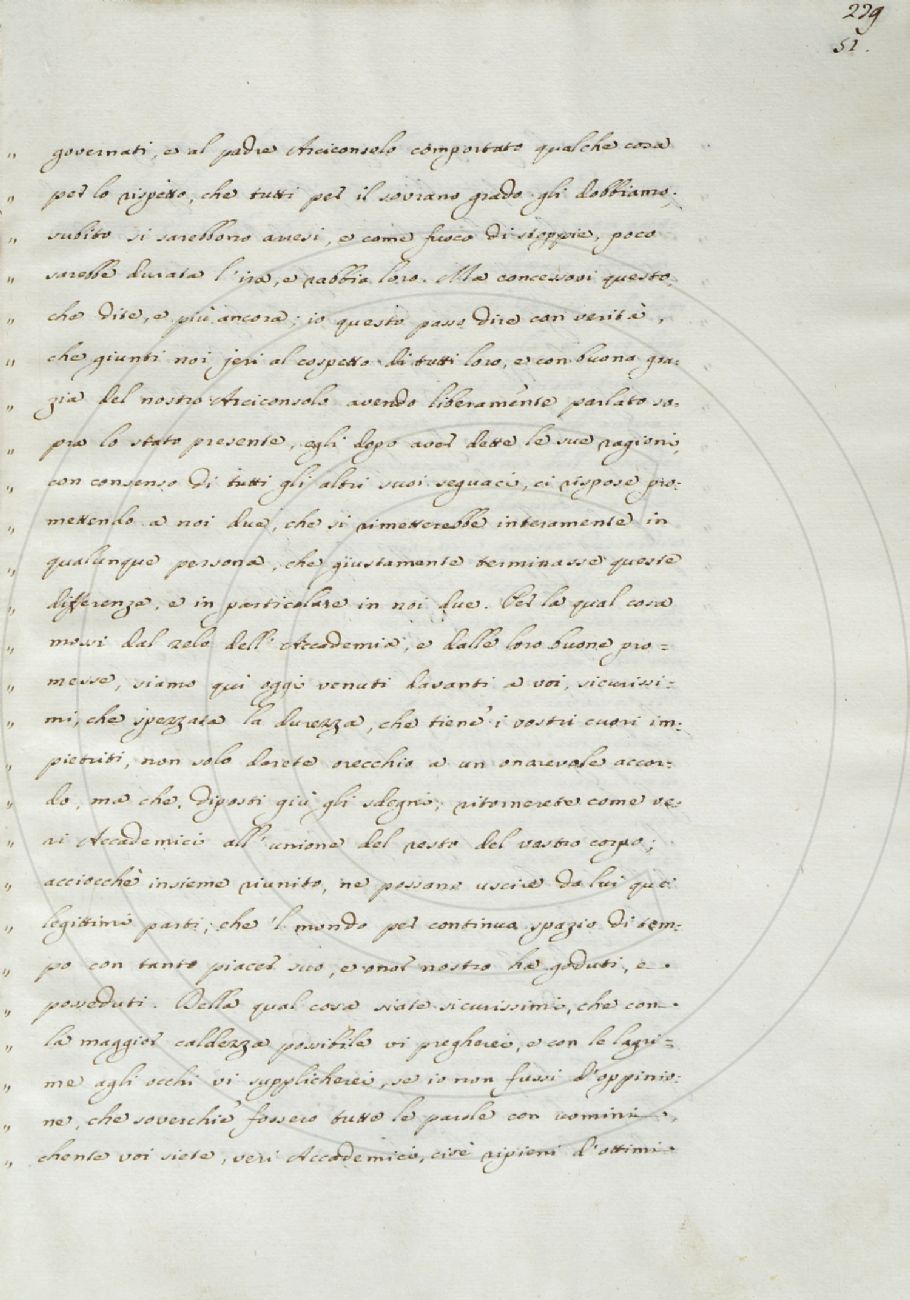 229
51.
„ governati, e al padre Arciconsolo comportato qualche cosa
„ per lo rispetto, che tutti per il sovrano grado gli dobbiamo;
„ subito si sarebbono arresi, e come fuoco di stoppie, poco
„ sarebbe durata l'ira, e rabbia loro. Ma concessovi questo,
„ che dite, e più ancora; io questo posso dire con verità,
„ che giunti noi jeri al cospetto di tutti loro, e con buona gra:
„ zia del nostro Arciconsolo avendo liberamente parlato so:
„ pra lo stato presente, egli dopo aver dette le sue ragioni,
„ con consenso di tutti gli altri suoi seguaci, ci rispose pro:
„ mettendo a noi due, che si rimetterebbe interamente in
„ qualunque persona, che giustamente terminasse queste
„ differenze, e in particolare in noi due. Per la qual cosa
„ mossi dal zelo dell'Accademia, e dalle loro buone pro=
„ messe, siamo qui oggi venuti davanti a voi, sicurissi:
„ mi, che spezzata la durezza, che tiene i vostri cuori im:
„ pietriti, non solo darete orecchio a un onorevole accor:
„ do, ma che, diposti giù gli sdegni, ritornerete come ve:
„ ri Accademici all'unione del resto del vostro corpo;
„ acciocchè insieme riunito, ne possano uscire da lui quei
„ legittimi parti, che 'l mondo per continuo spazio di tem:
„ po con tanto piacer suo, e onor nostro ha goduti, e
„ posseduti. Della qual cosa siate sicurissimi, che con
„ la maggior caldezza possibile vi pregherei, e con le lagri=
„ me agli occhi vi supplicherei, se io non fussi d'oppinio:
„ ne, che soverchie fossero tutte le parole con uomini,
„ chente voi siete, veri Accademici, cioè ripieni d'ottimi